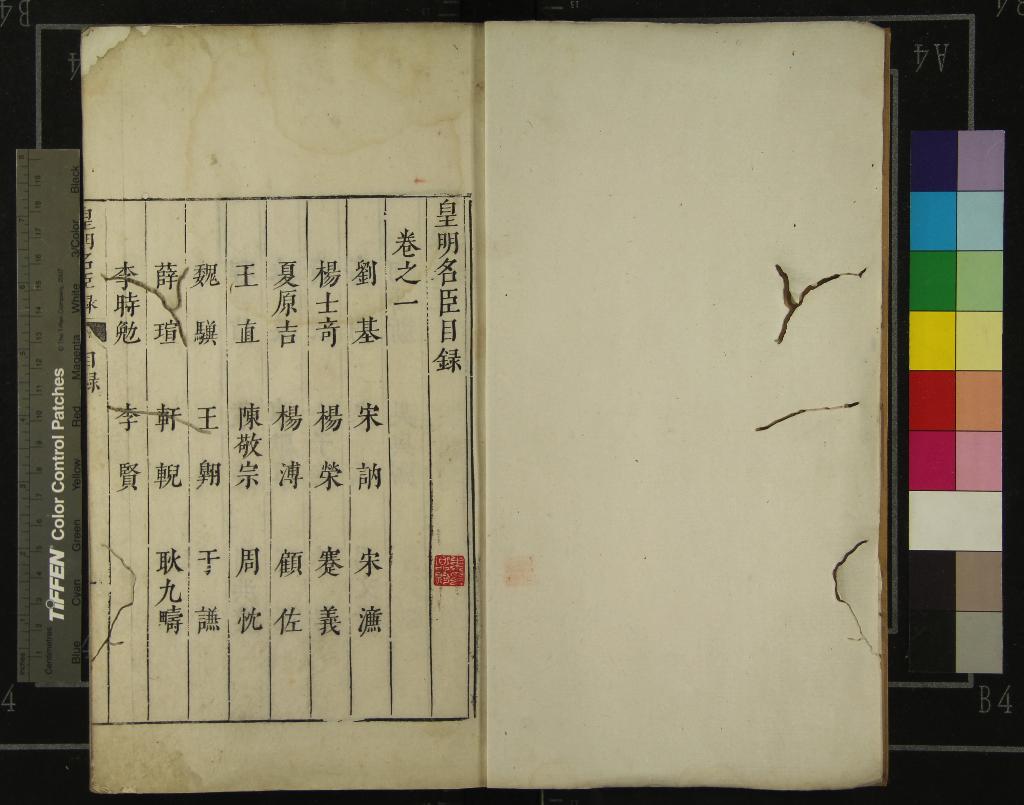 皇明名臣目録
卷之一
劉基 宋訥 宋濂
楊士竒 楊榮 蹇義
夏原吉 楊溥 顧佐
王直 陳敬宗 周忱
魏驥 王翱 于謙
薛瑄 軒輗 耿九疇
李時勉 李賢
皇明名臣録 目録
TIFFEN Color Control Patches
© The Tiffen Company, 2007
Blue Cyan Green Yellow Red Magenta White 3/Color Black
Inches
Centimetres
B4
A4
B4